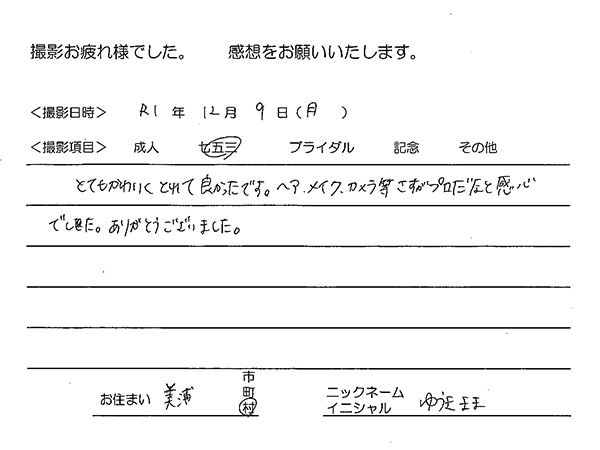 撮影お疲れ様でした。 感想をお願いいたします。
＜撮影日時＞ R1 年 12 月 9 日（月）
＜撮影項目＞ 成人 七五三 ブライダル 記念 その他
とてもかわいくとれて良かったです。ヘア、メイク、カメラ等さすがプロだなと感心
でした。ありがとうございました。
お住まい 美浦 市 町 村
ニックネーム
イニシャル ゆうきまま